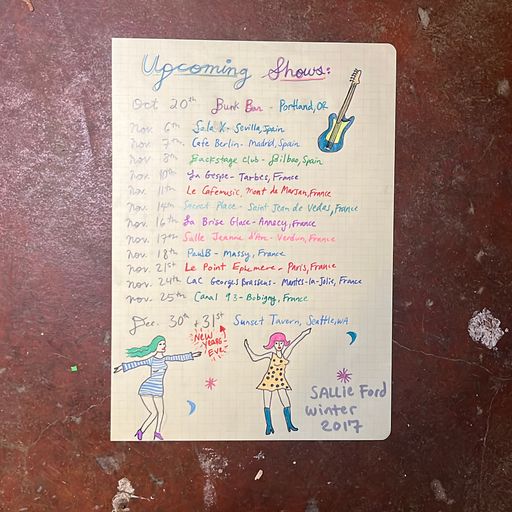 Upcoming Shows:
Oct 20th Bunk Bar - Portland, OR
Nov. 6th Sala X - Sevilla, Spain
Nov. 7th Cafe Berlin - Madrid, Spain
Nov. 8th Backstage Club - Bilbao, Spain
Nov. 10th La Gespe - Tarbes, France
Nov. 11th Le Cafemusic, Mont de Marsan, France
Nov. 14th Secret Place - Saint Jean de Vedas, France
Nov. 16th La Brise Glace - Annecy, France
Nov. 17th Salle Jeanne d'Arc - Verdun, France
Nov. 18th Paul B - Massy, France
Nov. 21st Le Point Ephemere - Paris, France
Nov. 24th CAC Georges Brassens - Mantes-la-Jolie, France
Nov. 25th Canal 93 - Bobigny, France
Dec. 30th + 31st Sunset Tavern, Seattle, WA
New
Years
Eve
SALLie Ford
Winter
2017